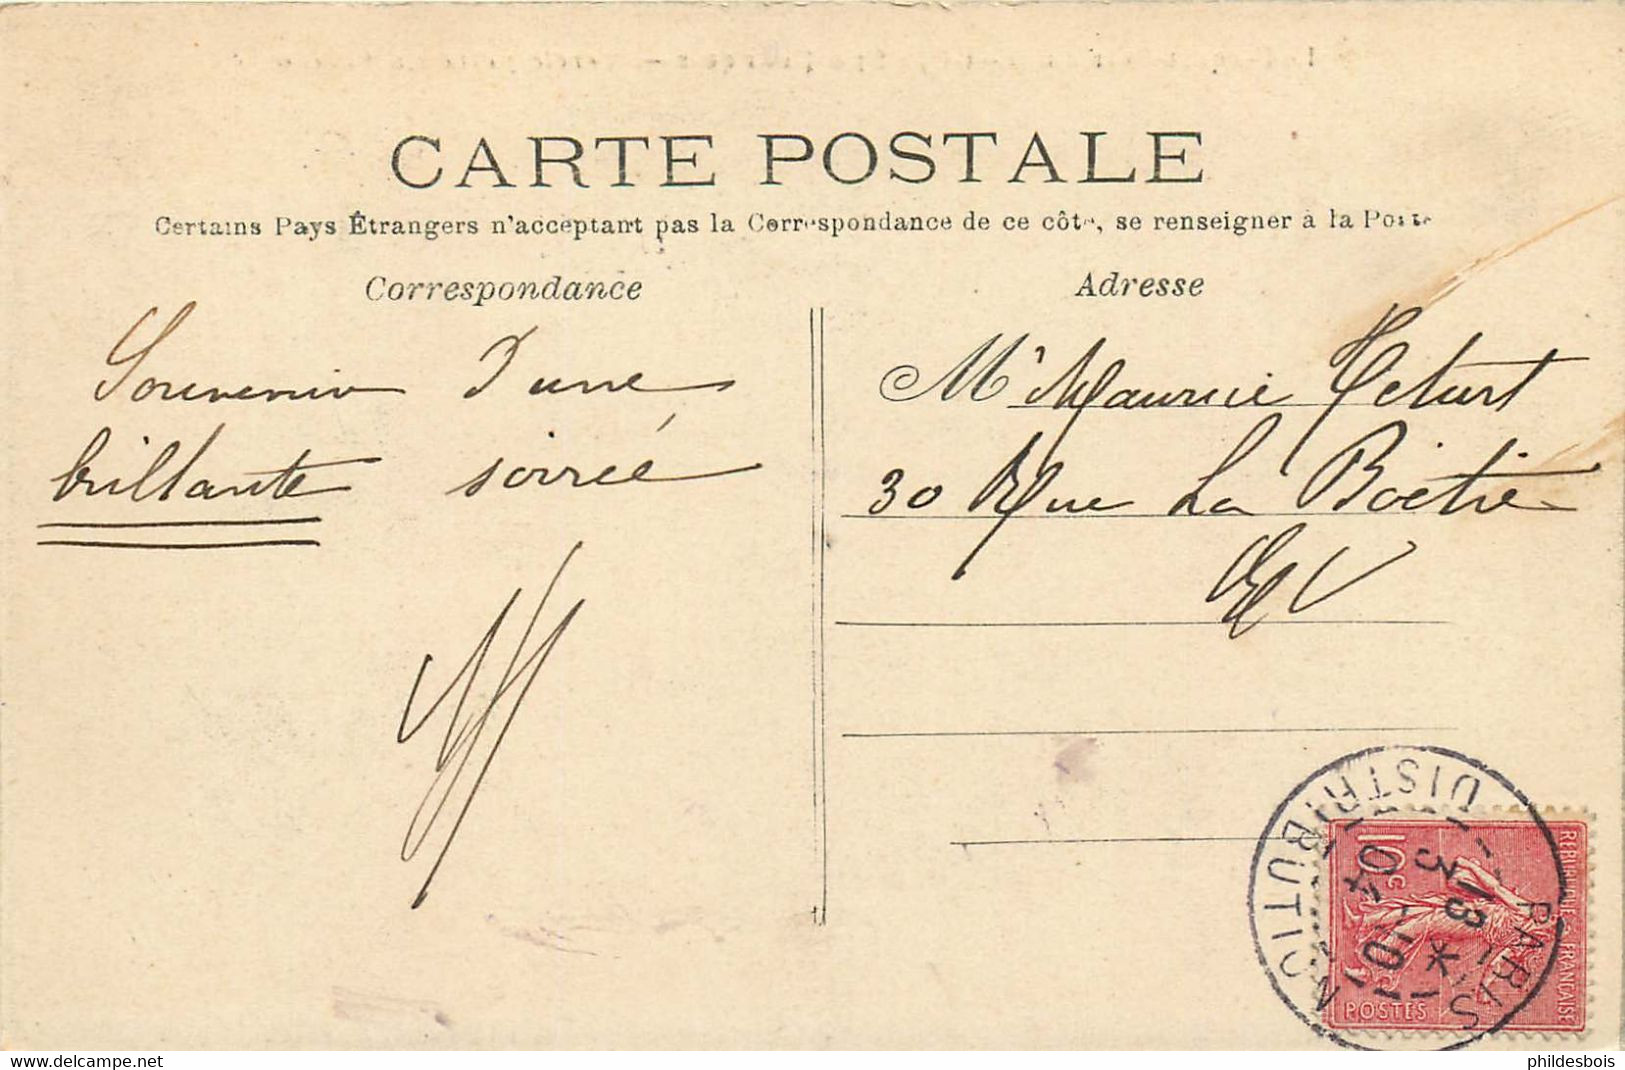 CARTE POSTALE
Certains Pays Étrangers n'acceptant pas la Correspondance de ce côté, se renseigner à la Poste
Correspondance
Souvenir d'une
brillante soirée
Adresse
Mr Maurice
30 Rue La Boëtie
EV
PARIS
DISTRIBUTION
13
3 *
04 10
10c
REPUBLIQUE FRANÇAISE
POSTES
www.delcampe.net
phildesbois